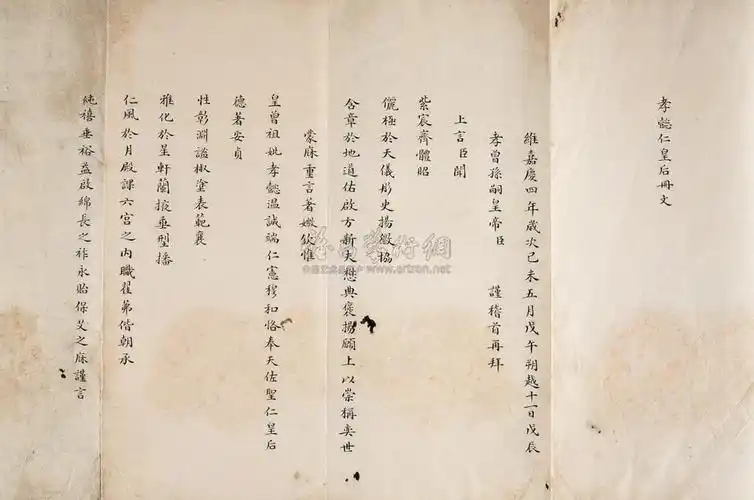 孝懿仁皇后冊文
維嘉慶四年歲次己未五月戊午朔越十一日戊辰
孝曾孫嗣皇帝臣 謹稽首再拜
上言臣聞
紫宸齊體昭
儷極於天儀彤史揚徽協
含章於地道佑啟方新大懋典褒揚願上以崇稱奕世
蒙庥重言著媺欽惟
皇曾祖妣孝懿溫誠端仁憲穆和恪奉天佐聖仁皇后
德著安貞
性彰淵謐椒塗表範襄
雅化於星軒蘭掖垂型播
仁風於月殿課六宮之內職翟茀偕朝承
純禧垂裕益啟綿長之祚永貽保艾之庥謹言
中國藝術品 www.artron.net